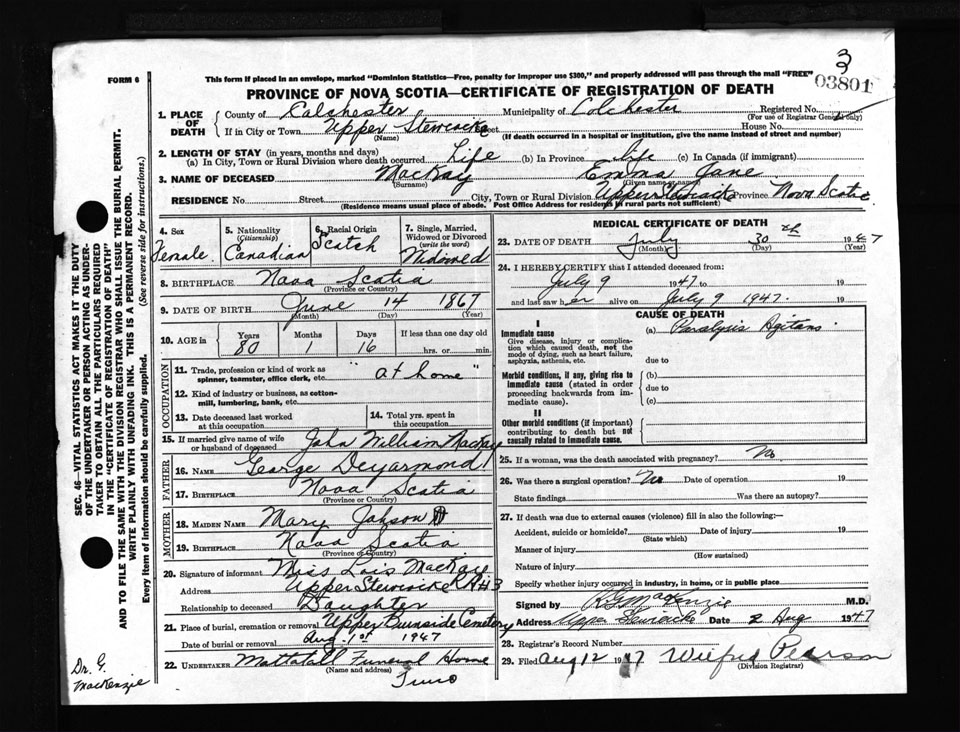 3
3
03801
FORM 6
This form if placed in an envelope, marked "Dominion Statistics—Free, penalty for improper use $300," and properly addressed will pass through the mail "FREE"
PROVINCE OF NOVA SCOTIA—CERTIFICATE OF REGISTRATION OF DEATH
1. PLACE OF DEATH
County of Colchester Municipality of Colchester Registered No.
(For use of Registrar General only)
If in City or Town Upper Stewiacke Street House No.
(Name) (If death occurred in a hospital or institution, give the name instead of street and number)
2. LENGTH OF STAY (in years, months and days)
(a) In City, Town or Rural Division where death occurred Life (b) In Province Life (c) In Canada (if immigrant)
3. NAME OF DECEASED MacKay Emma Jane
(Surname) (Given name or names)
RESIDENCE No. Street City, Town or Rural Division Upper Stewiacke Province Nova Scotia
(Residence means usual place of abode. Post Office Address for residents in rural parts not sufficient)
4. Sex
Female
5. Nationality
(Citizenship)
Canadian
6. Racial Origin
Scotch
7. Single, Married, Widowed or Divorced
(write the word)
Widowed
8. BIRTHPLACE Nova Scotia
(Province or Country)
9. DATE OF BIRTH June 14 1867
(Month) (Day) (Year)
10. AGE in
Years Months Days If less than one day old
80 1 16 hrs. or min.
OCCUPATION
11. Trade, profession or kind of work as spinner, teamster, office clerk, etc. "at home"
12. Kind of industry or business, as cotton-mill, lumbering, bank, etc.
13. Date deceased last worked at this occupation
14. Total yrs. spent in this occupation
15. If married give name of wife or husband of deceased John William MacKay
FATHER
16. NAME George Deyarmond
17. BIRTHPLACE Nova Scotia
(Province or Country)
MOTHER
18. MAIDEN NAME Mary Johson
19. BIRTHPLACE Nova Scotia
(Province or Country)
20. Signature of informant Miss Lois MacKay
Address Upper Stewiacke RR#3
Relationship to deceased Daughter
21. Place of burial, cremation or removal Upper Burnside Cemetery
Date of burial or removal Aug. 1st 1947
22. UNDERTAKER Mattatall Funeral Home
(Name and address)
Truro
MEDICAL CERTIFICATE OF DEATH
23. DATE OF DEATH July 30th 1947
(Month) (Day) (Year)
24. I HEREBY CERTIFY that I attended deceased from:
July 9 1947 to 19
and last saw her alive on July 9 1947. 19
CAUSE OF DEATH
I
Immediate cause
Give disease, injury or complication which caused death, not the mode of dying, such as heart failure, asphyxia, asthenia, etc.
(a) Paralysis Agitans
due to
Morbid conditions, if any, giving rise to immediate cause (stated in order proceeding backwards from immediate cause).
(b)
due to
(c)
II
Other morbid conditions (if important) contributing to death but not causally related to immediate cause.
25. If a woman, was the death associated with pregnancy? No
26. Was there a surgical operation? No Date of operation 19
State findings Was there an autopsy?
27. If death was due to external causes (violence) fill in also the following:—
Accident, suicide or homicide? Date of injury 19
(State which)
Manner of injury
(How sustained)
Nature of injury
Specify whether injury occurred in industry, in home, or in public place
Signed by R G MacKenzie M.D.
Address Upper Stewiacke Date 2 Aug 1947
28. Registrar's Record Number
29. Filed Aug 12 1947 Wilfred Pearson
(Division Registrar)
SEC. 46—VITAL STATISTICS ACT MAKES IT THE DUTY
OF THE UNDERTAKER OR PERSON ACTING AS UNDER-
TAKER TO OBTAIN ALL THE PARTICULARS REQUIRED
IN THE "CERTIFICATE OF REGISTRATION OF DEATH"
AND TO FILE THE SAME WITH THE DIVISION REGISTRAR WHO SHALL ISSUE THE BURIAL PERMIT.
WRITE PLAINLY WITH UNFADING INK. THIS IS A PERMANENT RECORD.
Every item of information should be carefully supplied. (See reverse side for instructions.)
Dr. G.
MacKenzie